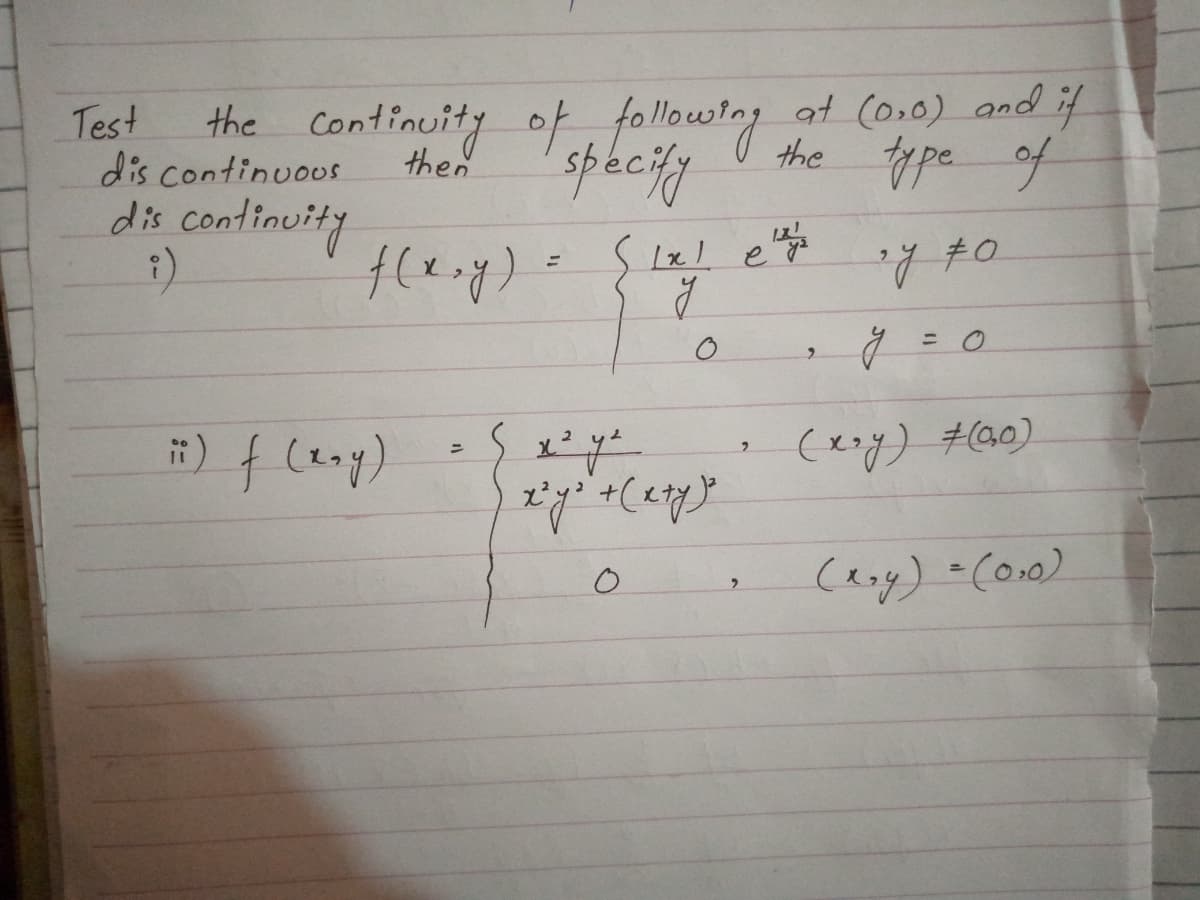 Test the continuity of following at (0,0) and if
discontinuous then specify the type of
discontinuity
i) f(x,y) = { |x|/y e^(|x|/y²) , y ≠ 0
0 , y = 0
ii) f(x,y) = { x²y² / (x²y² + (x+y)²) , (x,y) ≠ (0,0)
0 , (x,y) = (0,0)